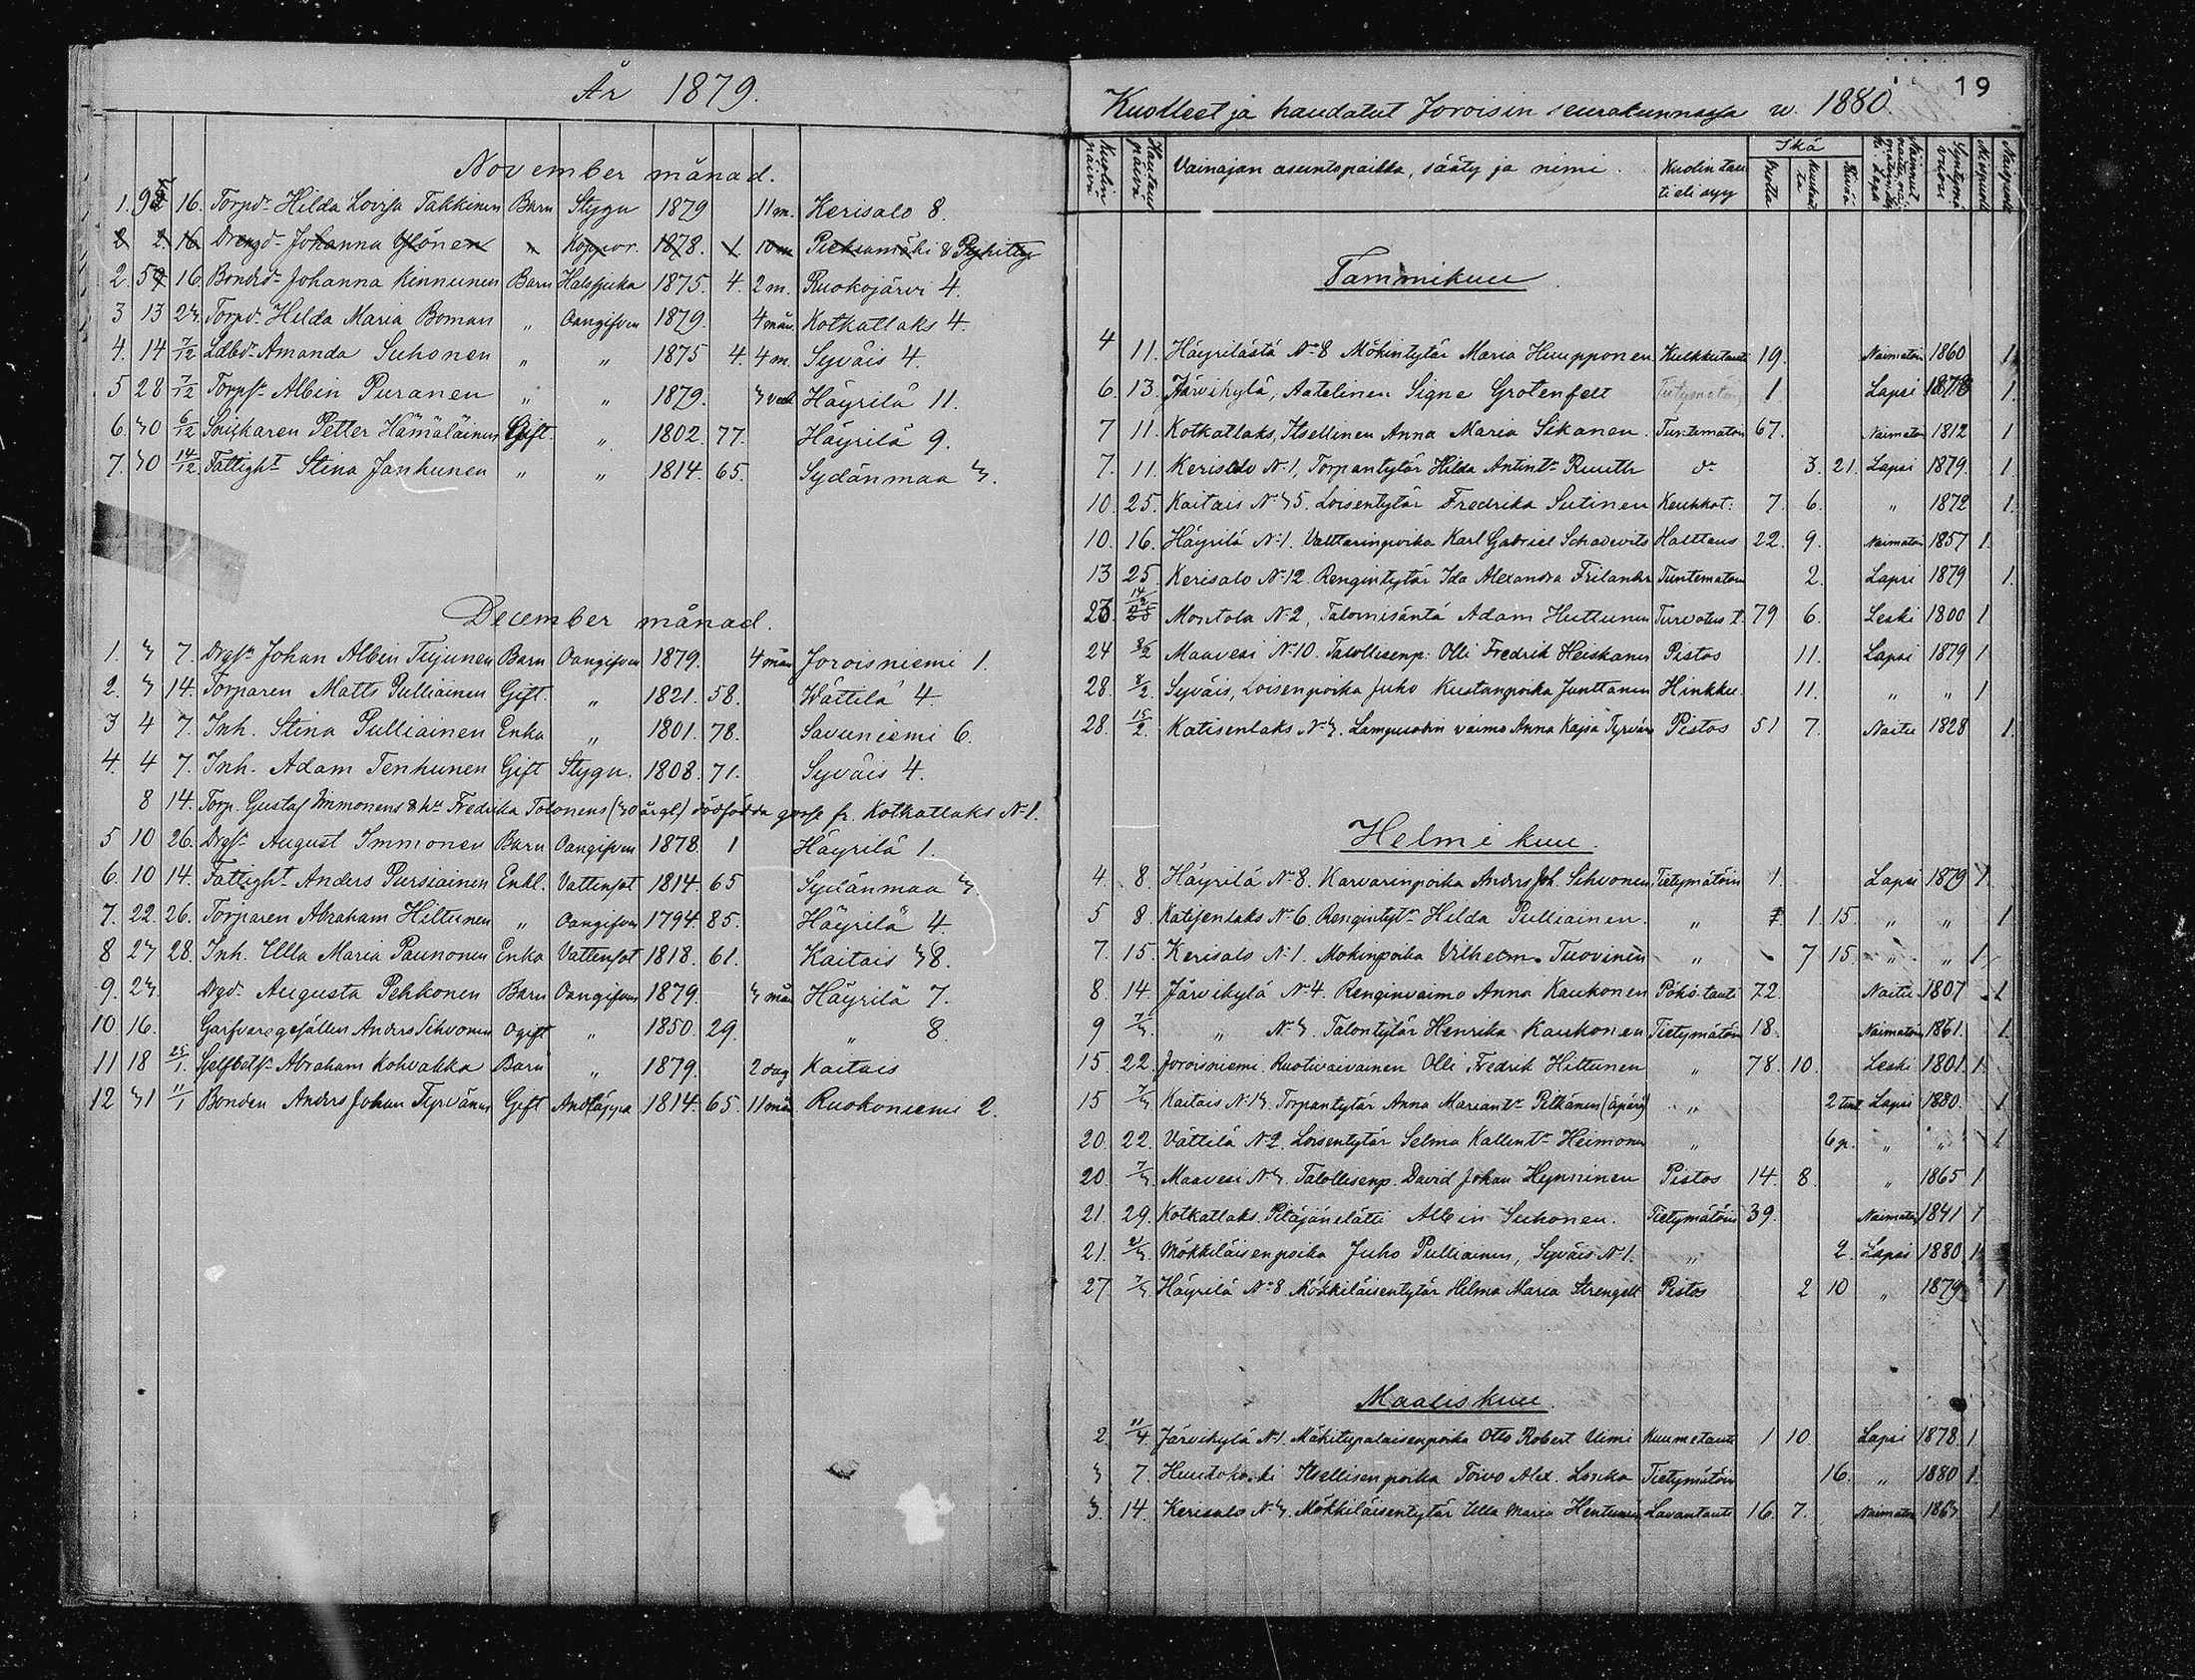 År 1879.
November månad.
1. 9 16. Torpd. Hilda Lovisa Takkinen Barn Stygn 1879 11 m. Kerisalo 8.
2. 2. 16. Drengd. Johanna Ylönen " Koppor. 1878. 1. 10 m. Pieksamäki
2. 5 16. Bonded. Johanna Kinnunen Barn Halssjuka 1875. 4. 2 m. Ruokojärvi 4.
3 13 23. Torpd. Hilda Maria Boman " Oangifven 1879. 4 mån. Kotkatlaks 4.
4. 14 7/12 Ldbd. Amanda Suhonen " " 1875 4. 4 m. Syväis 4.
5 28 7/12 Torps. Albin Puranen " " 1879. 3 veck Häyrilä 11.
6. 30 6/12 Petter Hämäläinen Gift. " 1802. 77. Häyrilä 9.
7. 30 14/12. Fattight. Stina Janhunen " " 1814. 65. Sydänmaa 3.
December månad.
1. 3 7. Drgs. Johan Albin Tiijunen Barn Oangifven 1879. 4 mån Joroisniemi 1.
2. 3 14. Torparen Matts Pulliainen Gift. " 1821. 58. Wättilä 4.
3 4 7. Inh. Stina Pulliainen Enka " 1801. 78. Savuniemi 6.
4. 4 7. Inh. Adam Tenhunen Gift Stygn. 1808. 71. Syväis 4.
8 14. Torp. Gustaf Immonens & hu Fredrika Tolonens (30 årgl) dödfödda gosse fr. Kotkatlaks No 1.
5 10 26. Drgs. August Immonen Barn Oangifven 1878. 1 Häyrilä 1.
6. 10 14. Fattight. Anders Pursiainen Enkl. Vattensot 1814. 65 Sydänmaa 3.
7. 22. 26. Torparen Abraham Hiltunen " Oangifven 1794. 85. Häyrilä 4.
8 23 28. Inh. Ulla Maria Paunonen Enka Vattensot 1818. 61. Kaitais 38.
9. 23. Drgd. Augusta Pekkonen Barn Oangifven 1879. 3 mån Häyrilä 7.
10 16. Garfvaregesällen Anders Sihvonen Ogift " 1850. 29. " 8.
11 18 25/1. Abraham Kohvakka Barn " 1879. 2 dag Kaitais
12 31 11/1 Bonden Anders Johan Tyrvänen Gift Andtäppa 1814. 65. 11 mån Ruokoniemi 2.
19
Kuolleet ja haudatut Joroisin seurakunnassa w. 1880.
Kuolin päivä Hautaus päivä Vainajan asuntopaikka, sääty ja nimi. Kuolintauti eli syy Ikä Vuotta Kuukautta Päivä Syntymä vuosi Miespuoli Naispuoli
Tammikuu
4 11. Häyrilästä No 8 Mökintytär Maria Huupponen Kulkkutauti 19. Naimaton 1860 1.
6. 13. Järvikylä, Aatelinen Signe Grotenfelt Tietymätön 1. Lapsi 1878 1.
7 11. Kotkatlaks, Itsellinen Anna Maria Sikanen. Tuntematon 67. Naimaton 1812 1
7. 11. Kerisalo No 1, Torpantytär Hilda Antint. Ruuth do 3. 21. Lapsi 1879. 1.
10. 25. Kaitais No 35. Loisentytär Fredrika Sutinen Keuhkot. 7. 6. " 1872 1.
10. 16. Häyrilä No 1. Valttarinpoika Karl Gabriel Schadevits Halttaus 22. 9. Naimaton 1857 1.
13 25. Kerisalo No 12. Rengintytär Ida Alexandra Frilander Tuntematon 2. Lapsi 1879 1.
23. 14/2 Montola No 2, Talonisäntä Adam Huttunen Turvotus t. 79 6. Leski 1800 1
24 8/2 Maavesi No 10. Talollisenp. Olli Fredrik Heiskanen Pistos 11. Lapsi 1879 1
28. 8/2. Syväis, Loisenpoika Juho Kustanpoika Junttanen Hinkku. 11. " " 1
28. 15/2. Katisenlaks No 3. Lampuodin vaimo Anna Kajsa Tyrvän Pistos 51 7. Naitu 1828 1.
Helmikuu.
4. 8. Häyrilä No 8. Karvarinpoika Anders Joh. Sihvonen Tietymätöin 1. Lapsi 1879 1.
5 8 Katisenlaks No 6. Rengintytr. Hilda Pulliainen. " 1. 15. " " 1
7. 15. Kerisalo No 1. Mökinpoika Vilhelm Tuovinen " 7 15. " " 1.
8. 14. Järvikylä No 4. Renginvaimo Anna Kaukonen Pöhö-tauti 72. Naitu 1807 1
9 7/3. " No 3. Talontytär Henrika Kaukonen Tietymätöin 18. Naimaton 1861. 1.
15 22. Joroisniemi. Ruotivaivainen Olli Fredrik Hiltunen " 78. 10. Leski 1801. 1.
15 7/3. Kaitais No 13. Torpantytär Anna Mariant. Pitkänen (äpärä) " 2 tunt Lapsi 1880. 1
20. 22. Vättilä No 2. Loisentytär Selma Kallent. Heimonen " 6 p. " " 1
20. 7/3. Maavesi No 3. Talollisenp. David Johan Hynninen Pistos 14. 8. " 1865 1.
21. 29. Kotkatlaks. Pitäjänelätti Albin Suhonen. Tietymätöin 39. Naimaton 1841 1
21. 21/3. Mökkiläisenpoika Juho Pulliainen, Syväis No 1. " 2. Lapsi 1880. 1.
27. 7/3. Häyrilä No 8. Mökkiläisentytär Helma Maria Strengell Pistos 2 10 " 1879 1
Maaliskuu.
2. 11/4. Järvikylä No 1. Mäkitupalaisenpoika Otto Robert Uimi Kuumetauti 1 10. Lapsi 1878 1.
3 7. Huutokoski Itsellisenpoika Toivo Alex. Tietymätöin 16. " 1880 1.
3. 14. Kerisalo No 3. Mökkiläisentytär Ulla Maria Hentunen Lavantauti 16. 7. Naimaton 1863 1